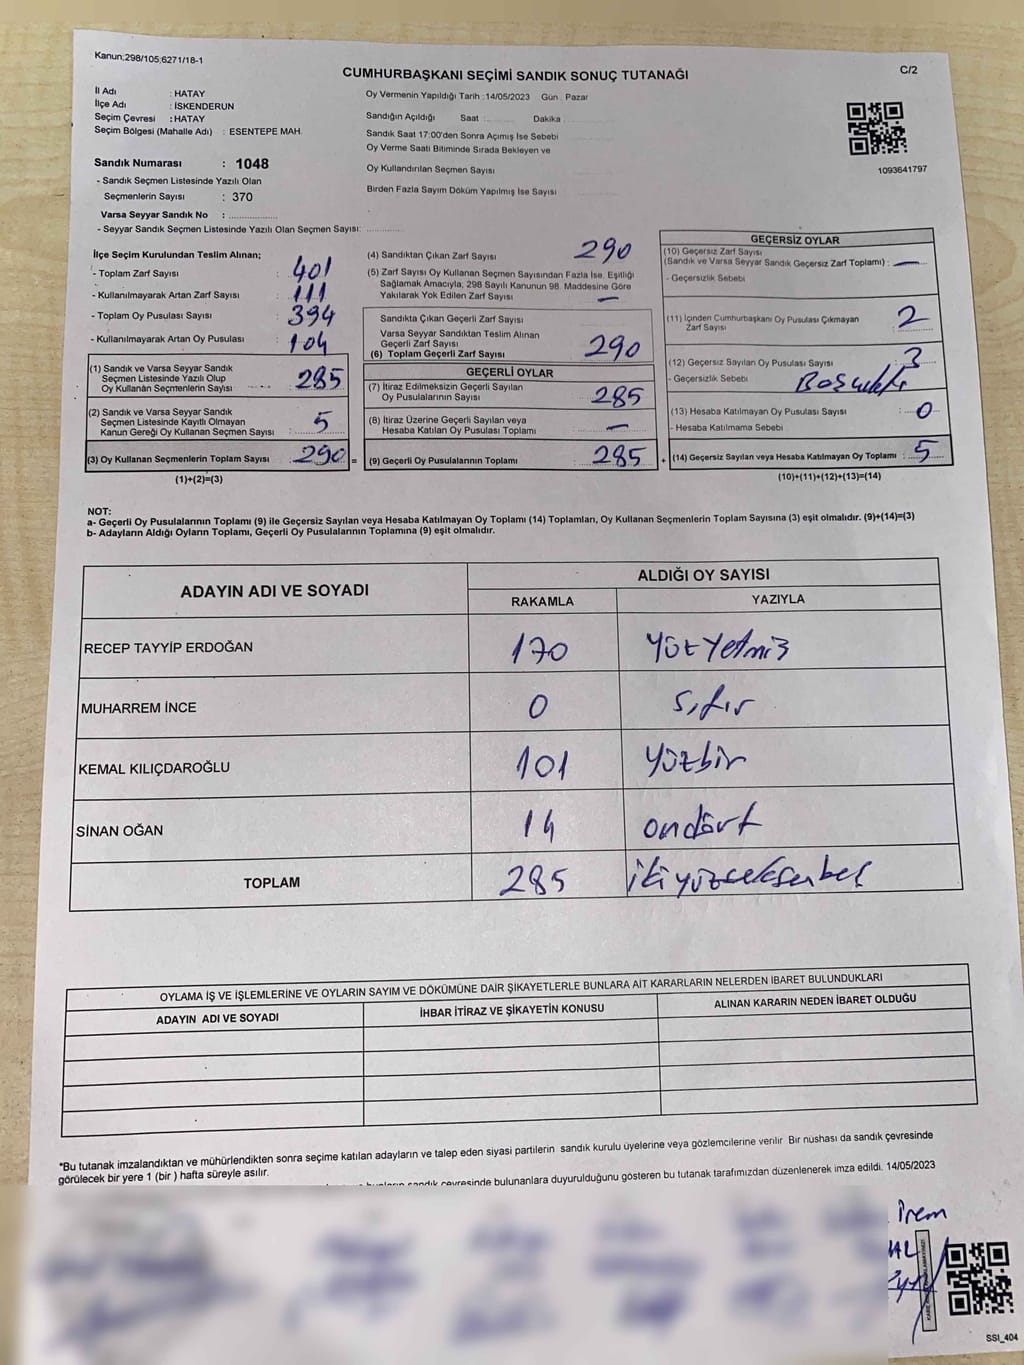 Kanun;298/105;6271/18-1
CUMHURBAŞKANI SEÇİMİ SANDIK SONUÇ TUTANAĞI
C/2
İl Adı : HATAY
İlçe Adı : İSKENDERUN
Seçim Çevresi : HATAY
Seçim Bölgesi (Mahalle Adı) : ESENTEPE MAH.
Sandık Numarası : 1048
- Sandık Seçmen Listesinde Yazılı Olan
Seçmenlerin Sayısı : 370
Varsa Seyyar Sandık No : ................
- Seyyar Sandık Seçmen Listesinde Yazılı Olan Seçmen Sayısı: ............
Oy Vermenin Yapıldığı Tarih :14/05/2023 Gün : Pazar
Sandığın Açıldığı Saat : Dakika
Sandık Saat 17:00'den Sonra Açımış İse Sebebi
Oy Verme Saati Bitiminde Sırada Bekleyen ve
Oy Kullandırılan Seçmen Sayısı
Birden Fazla Sayım Döküm Yapılmış İse Sayısı
1093641797
İlçe Seçim Kurulundan Teslim Alınan;
- Toplam Zarf Sayısı : 401
- Kullanılmayarak Artan Zarf Sayısı : 111
- Toplam Oy Pusulası Sayısı : 394
- Kullanılmayarak Artan Oy Pusulası : 104
(1) Sandık ve Varsa Seyyar Sandık
Seçmen Listesinde Yazılı Olup
Oy Kullanan Seçmenlerin Sayısı 285
(2) Sandık ve Varsa Seyyar Sandık
Seçmen Listesinde Kayıtlı Olmayan
Kanun Gereği Oy Kullanan Seçmen Sayısı : 5
(3) Oy Kullanan Seçmenlerin Toplam Sayısı 290 =
(1)+(2)=(3)
(4) Sandıktan Çıkan Zarf Sayısı 290
(5) Zarf Sayısı Oy Kullanan Seçmen Sayısından Fazla İse, Eşitliği
Sağlamak Amacıyla, 298 Sayılı Kanunun 98. Maddesine Göre
Yakılarak Yok Edilen Zarf Sayısı —
Sandıkta Çıkan Geçerli Zarf Sayısı
Varsa Seyyar Sandıktan Teslim Alınan
Geçerli Zarf Sayısı
(6) Toplam Geçerli Zarf Sayısı 290
GEÇERLİ OYLAR
(7) İtiraz Edilmeksizin Geçerli Sayılan
Oy Pusulalarının Sayısı 285
(8) İtiraz Üzerine Geçerli Sayılan veya
Hesaba Katılan Oy Pusulası Toplamı —
(9) Geçerli Oy Pusulalarının Toplamı 285 +
GEÇERSİZ OYLAR
(10) Geçersiz Zarf Sayısı
(Sandık ve Varsa Seyyar Sandık Geçersiz Zarf Toplamı) : —
- Geçersizlik Sebebi
(11) İçinden Cumhurbaşkanı Oy Pusulası Çıkmayan
Zarf Sayısı 2
(12) Geçersiz Sayılan Oy Pusulası Sayısı 3
- Geçersizlik Sebebi
(13) Hesaba Katılmayan Oy Pusulası Sayısı 0
- Hesaba Katılmama Sebebi
(14) Geçersiz Sayılan veya Hesaba Katılmayan Oy Toplamı : 5
(10)+(11)+(12)+(13)=(14)
NOT:
a- Geçerli Oy Pusulalarının Toplamı (9) ile Geçersiz Sayılan veya Hesaba Katılmayan Oy Toplamı (14) Toplamları, Oy Kullanan Seçmenlerin Toplam Sayısına (3) eşit olmalıdır. (9)+(14)=(3)
b- Adayların Aldığı Oyların Toplamı, Geçerli Oy Pusulalarının Toplamına (9) eşit olmalıdır.
ADAYIN ADI VE SOYADI ALDIĞI OY SAYISI
RAKAMLA YAZIYLA
RECEP TAYYİP ERDOĞAN 170 Yüz Yetmiş
MUHARREM İNCE 0 sıfır
KEMAL KILIÇDAROĞLU 101 Yüzbir
SİNAN OĞAN 14 ondört
TOPLAM 285 ikiyüzseksenbeş
OYLAMA İŞ VE İŞLEMLERİNE VE OYLARIN SAYIM VE DÖKÜMÜNE DAİR ŞİKAYETLERLE BUNLARA AİT KARARLARIN NELERDEN İBARET BULUNDUKLARI
ADAYIN ADI VE SOYADI İHBAR İTİRAZ VE ŞİKAYETİN KONUSU ALINAN KARARIN NEDEN İBARET OLDUĞU
*Bu tutanak imzalandıktan ve mühürlendikten sonra seçime katılan adayların ve talep eden siyasi partilerin sandık kurulu üyelerine veya gözlemcilerine verilir Bir nüshası da sandık çevresinde
görülecek bir yere 1 (bir ) hafta süreyle asılır.
sandık çevresinde bulunanlara duyurulduğunu gösteren bu tutanak tarafımızdan düzenlenerek imza edildi. 14/05/2023
İrem
SSI_404